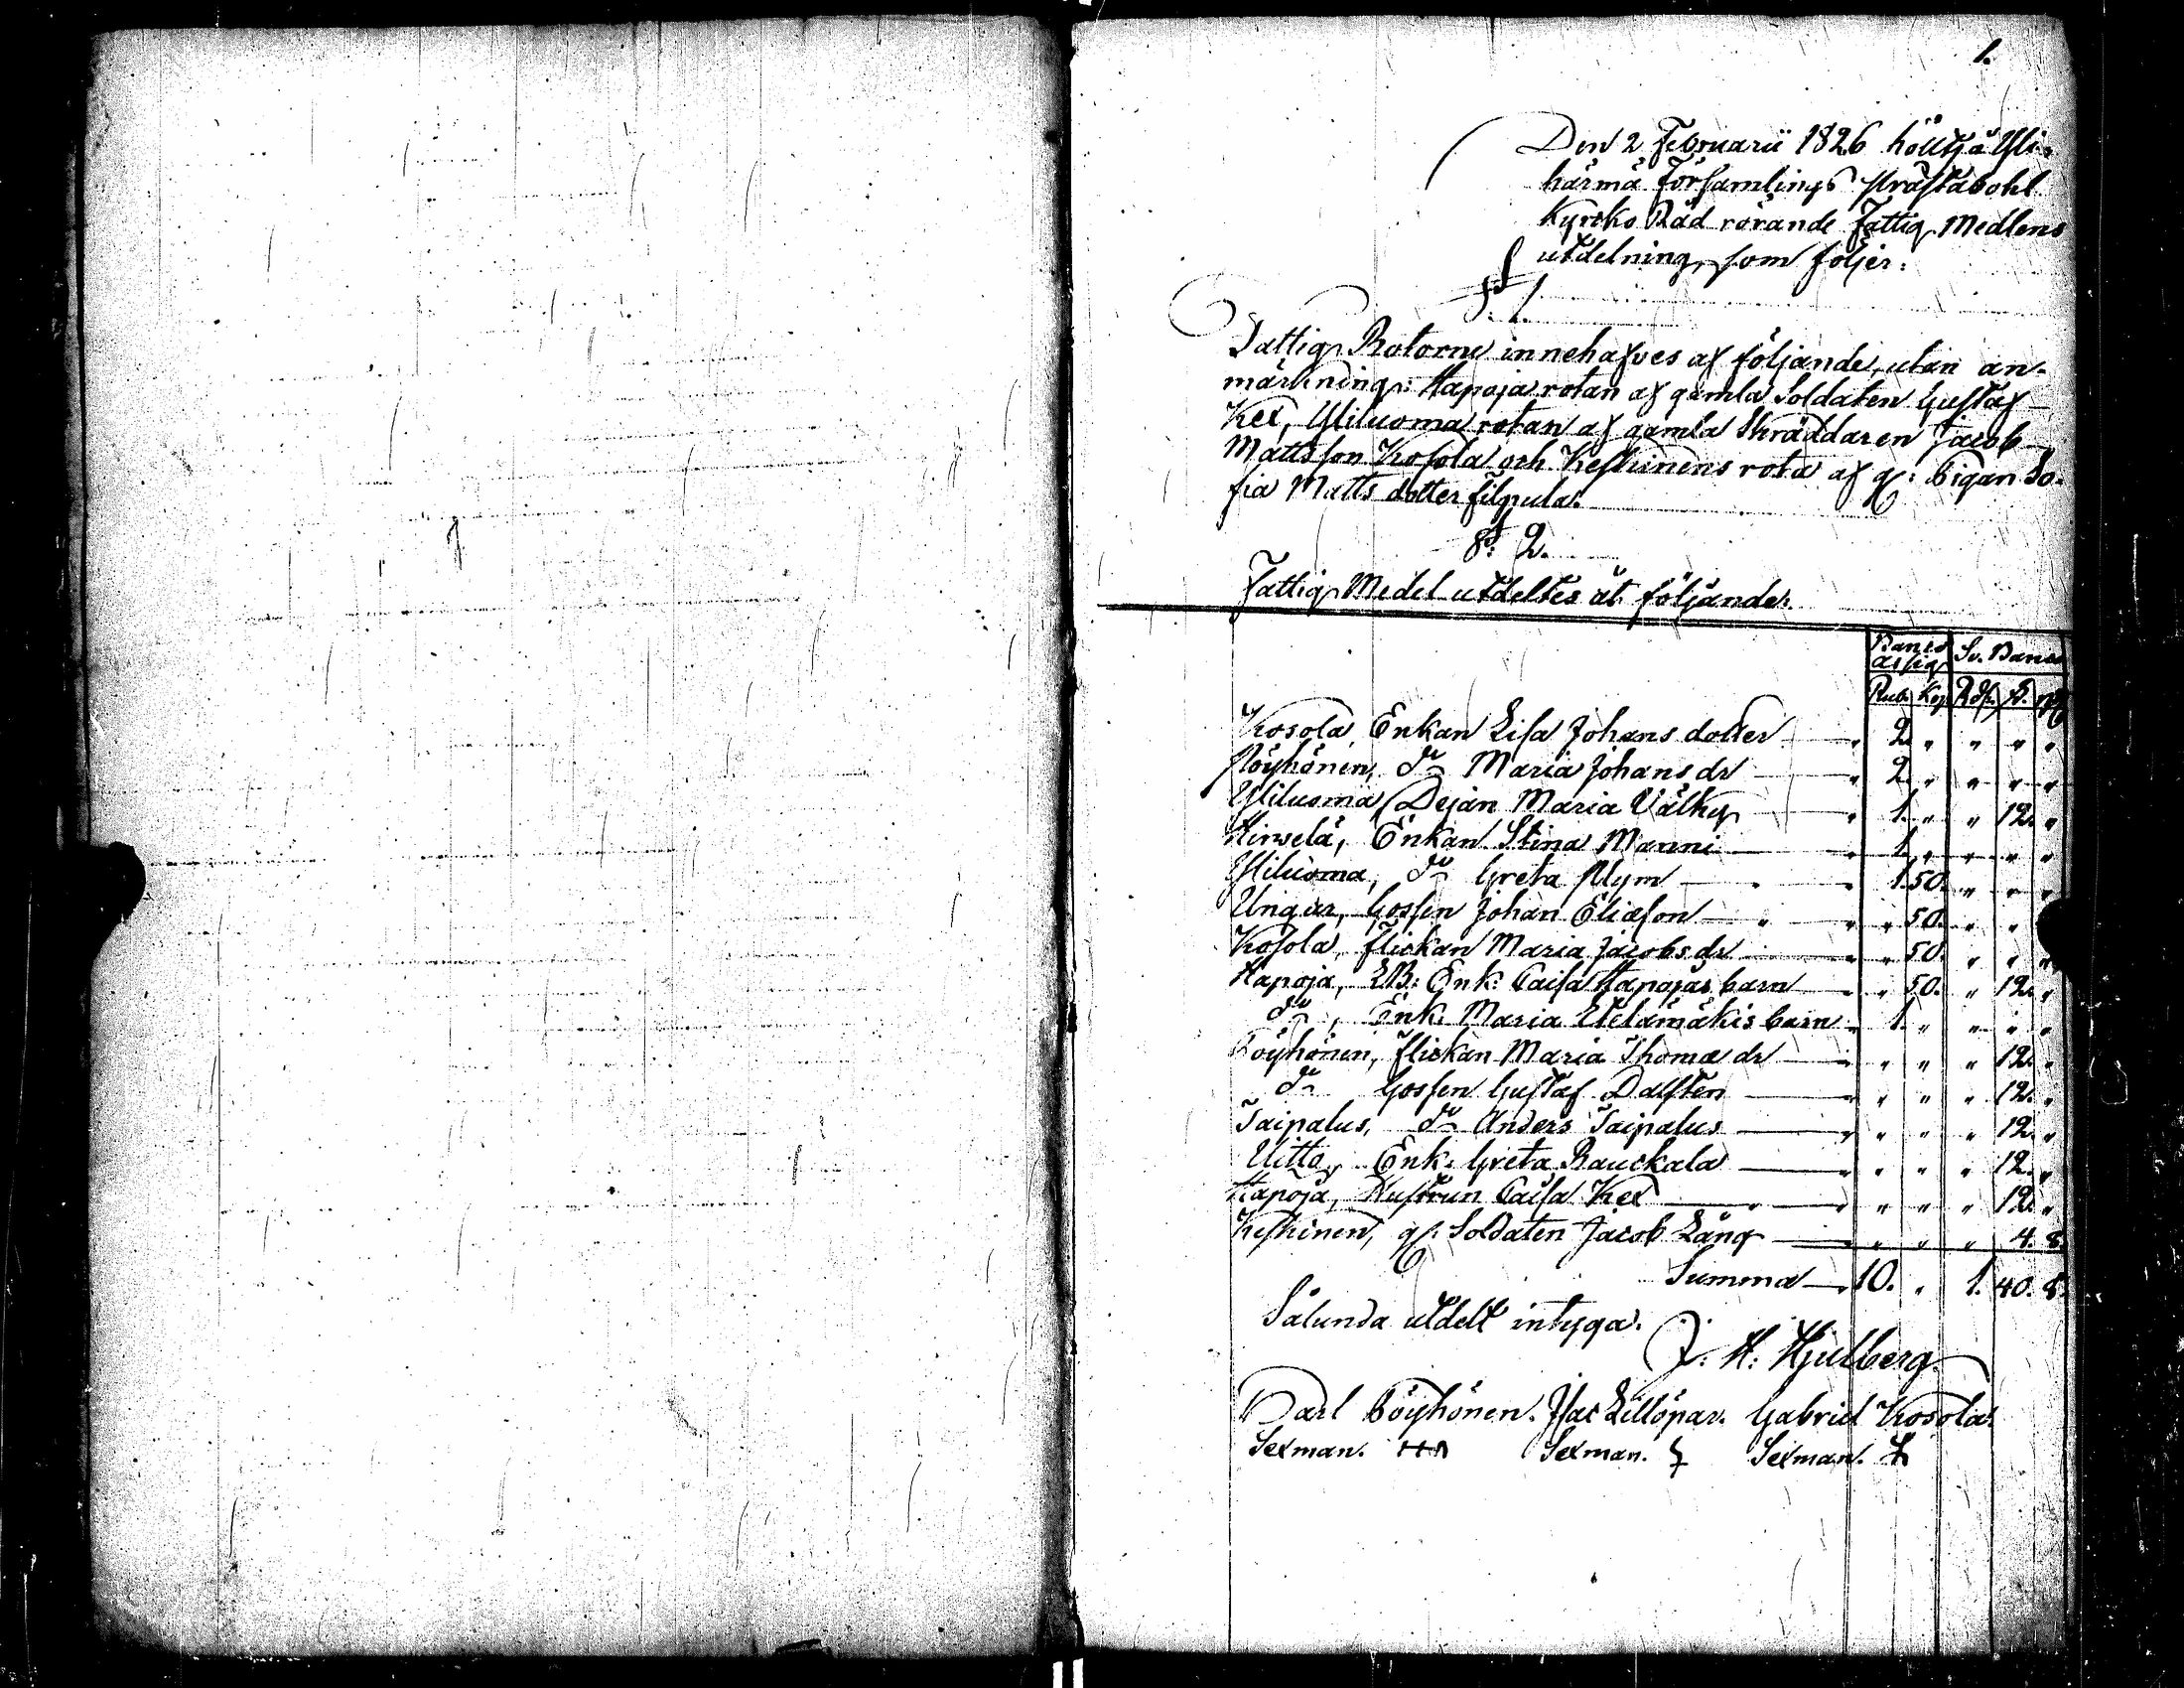 1.
Den 2 Februarii 1826 hölts å Yli-
härmä Församlings Prästabohl
Kyrcko Råd rörande Fattig Medlens
utdelning, som följer:
§: 1.
Fattig Rotorne innehafves af följande, utan an-
märkning: Hapoja rotan af gamla Soldaten Gustaf
Kex, Yliluoma rotan af gamla Skräddaren Jacob
Mattsson Kosola och Keskinens rota af g: Pigan So-
fia Matts dotter Filpula.
§: 2.
Fattig Medel utdeltes åt följande.
Banco assig Sv. Banco
Rub. Kop. Rdr. s. rst
Kosola, Enkan Lisa Johans dotter — " 2. " " " "
Pöyhönen, do Maria Johans dr — " 2. " " " "
Yliluoma, Dejan Maria Välky — " 1. " " 12. "
Hirvelä, Enkan Stina Manni — " 1. " " " "
Yliluoma, do Greta Plym — " 1. 50. " " "
Ungar, Gossen Johan Eliasson — " " 50. " " "
Kosola, Flickan Maria Jacobs dr — " " 50. " " "
Hapoja, EB: Enk: Caisa Hapojas barn — " " 50. " 12. "
do, Enk. Maria Etelämäkis barn " 1. " " " "
Pöyhönen, Flickan Maria Thomæ dr — " " " " 12. "
do Gossen Gustaf Dalsten — " " " " 12. "
Taipalus, do Anders Taipalus — " " " " 12. "
Uitto, Enk: Greta Rauckala — " " " 12. "
Hapoja, Hustrun Caisa Kex — " " " " 12. "
Keskinen, g: Soldaten Jacob Lång — " " " " 4. 8.
Summa — 10. " 1. 40. 8.
Sålunda utdelt intyga.
J: H: Hjulberg.
Carl Pöyhönen. Isac Lillöpar. Gabriel Kosola.
Sexman. Sexman. Sexman.